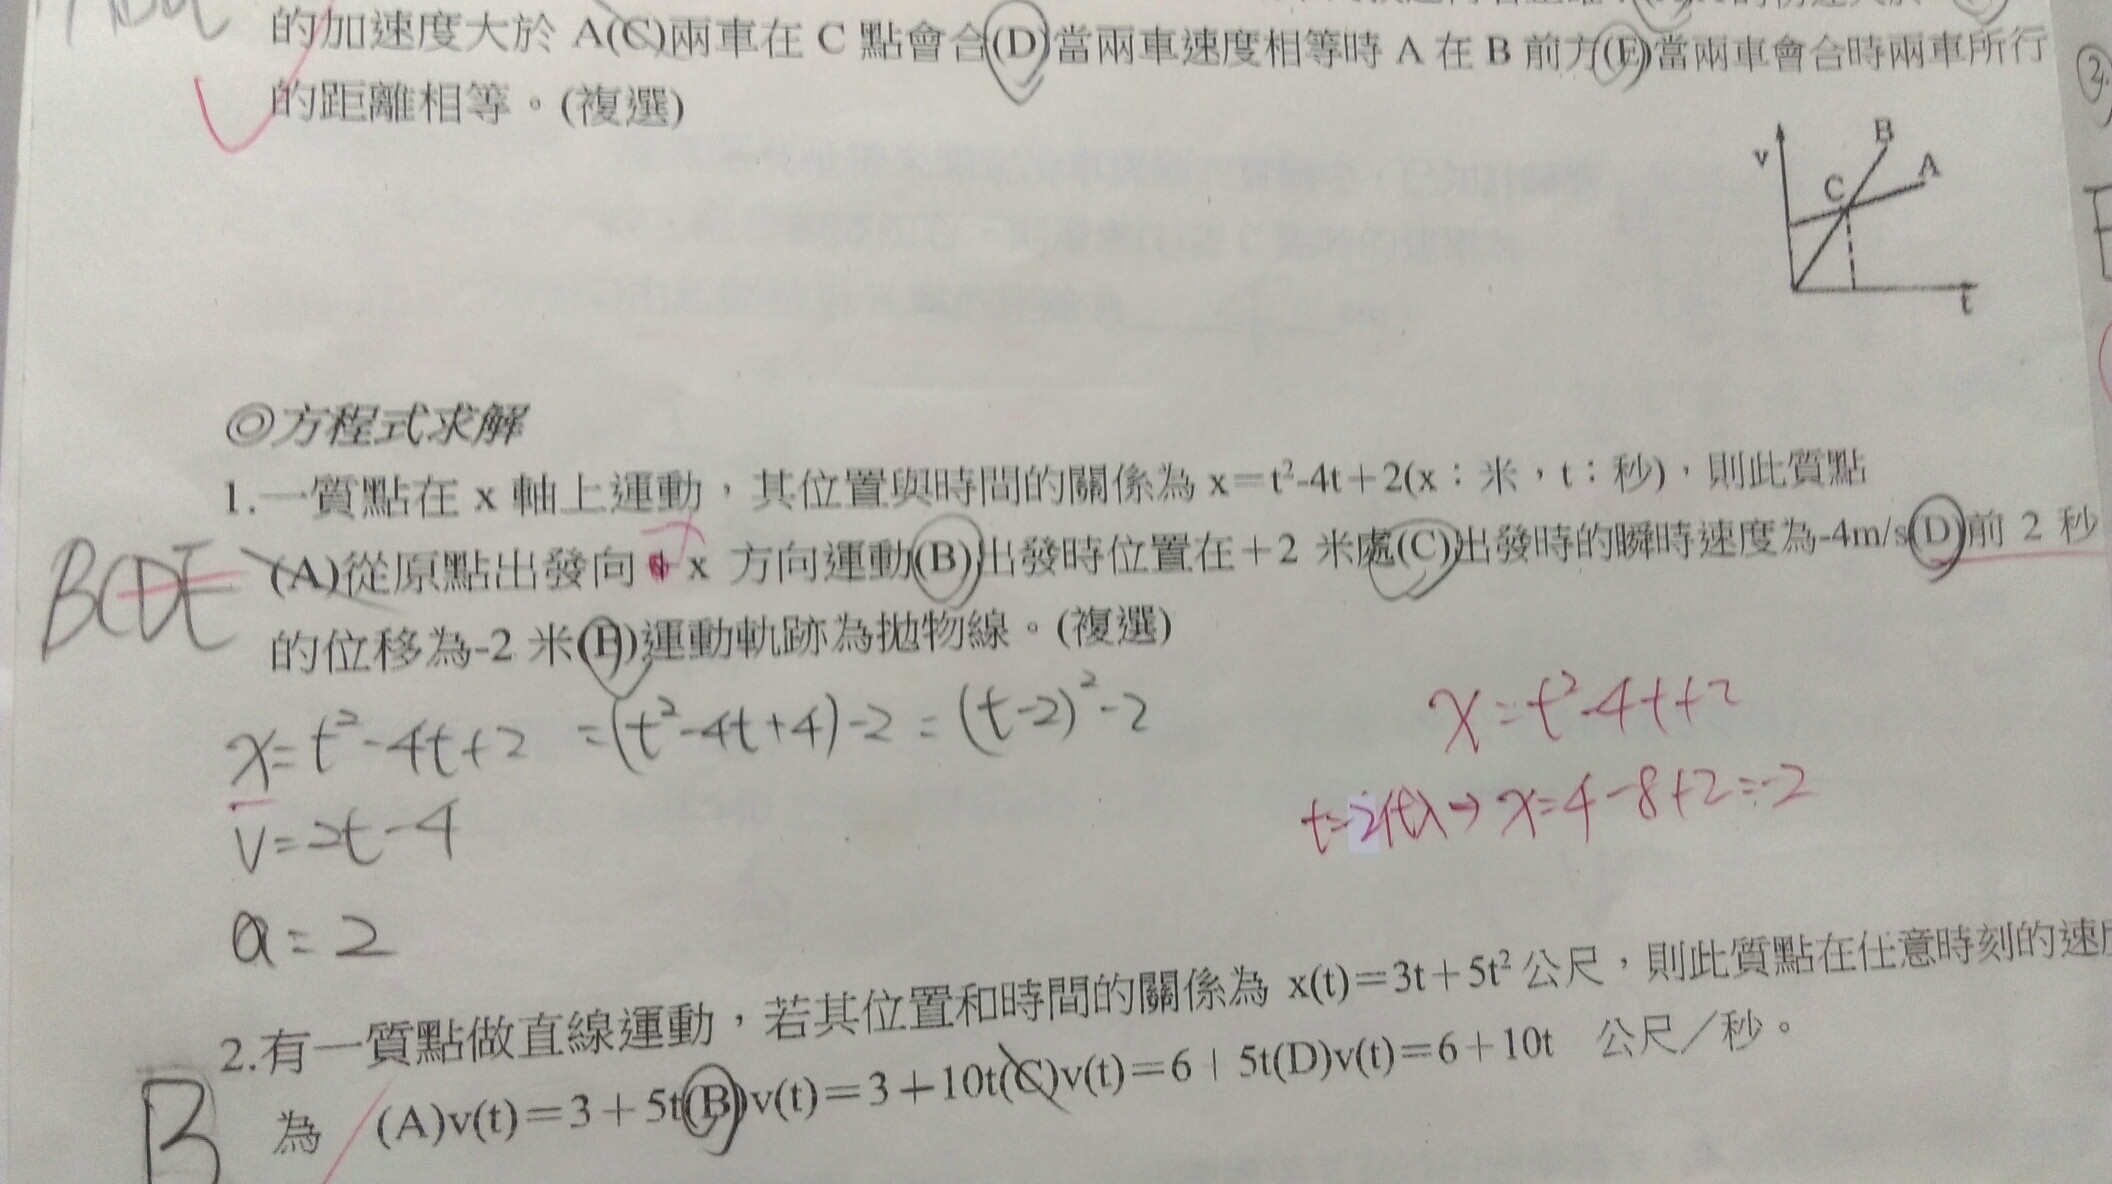 的加速度大於 A(C)兩車在 C 點會合(D)當兩車速度相等時 A 在 B 前方(E)當兩車會合時兩車所行
的距離相等。(複選)
v
B
A
C
t
◎方程式求解
1.一質點在 x 軸上運動，其位置與時間的關係為 x=t²-4t+2(x：米，t：秒)，則此質點
BCDE
(A)從原點出發向 x 方向運動(B)出發時位置在+2 米處(C)出發時的瞬時速度為-4m/s(D)前 2 秒
的位移為-2 米(E)運動軌跡為拋物線。(複選)
x=t²-4t+2 =(t²-4t+4)-2=(t-2)²-2
x=t²-4t+2
v=2t-4
t=2代入→x=4-8+2=-2
a=2
2.有一質點做直線運動，若其位置和時間的關係為 x(t)=3t+5t² 公尺，則此質點在任意時刻的速度
B
為 (A)v(t)=3+5t(B)v(t)=3+10t(C)v(t)=6+5t(D)v(t)=6+10t 公尺／秒。